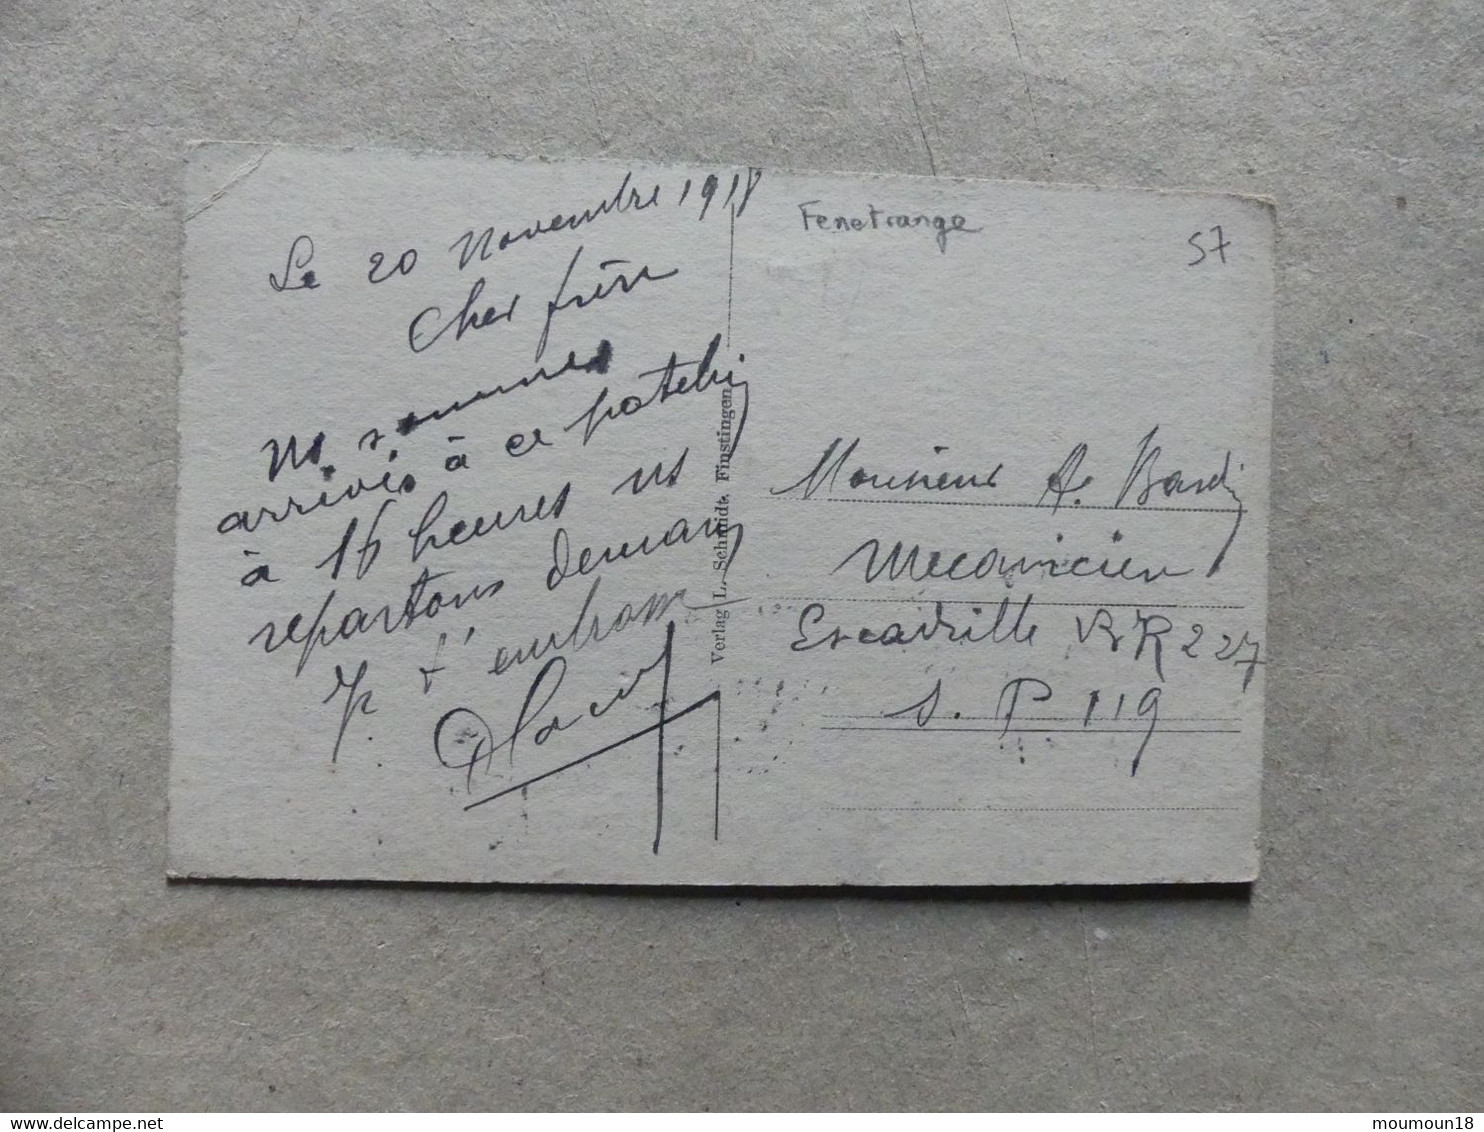 Le 20 Novembre 1918
Cher frère
Ns sommes
arrivés à ce patelin
à 16 heures ns
repartons demain
Je t'embrasse
Verlag L. Schmidt, Finstingen.
Fenetrange
57
Monsieur A. Bardin
Mecanicien
Escadrille BR 227
S. P 119
moumoun18